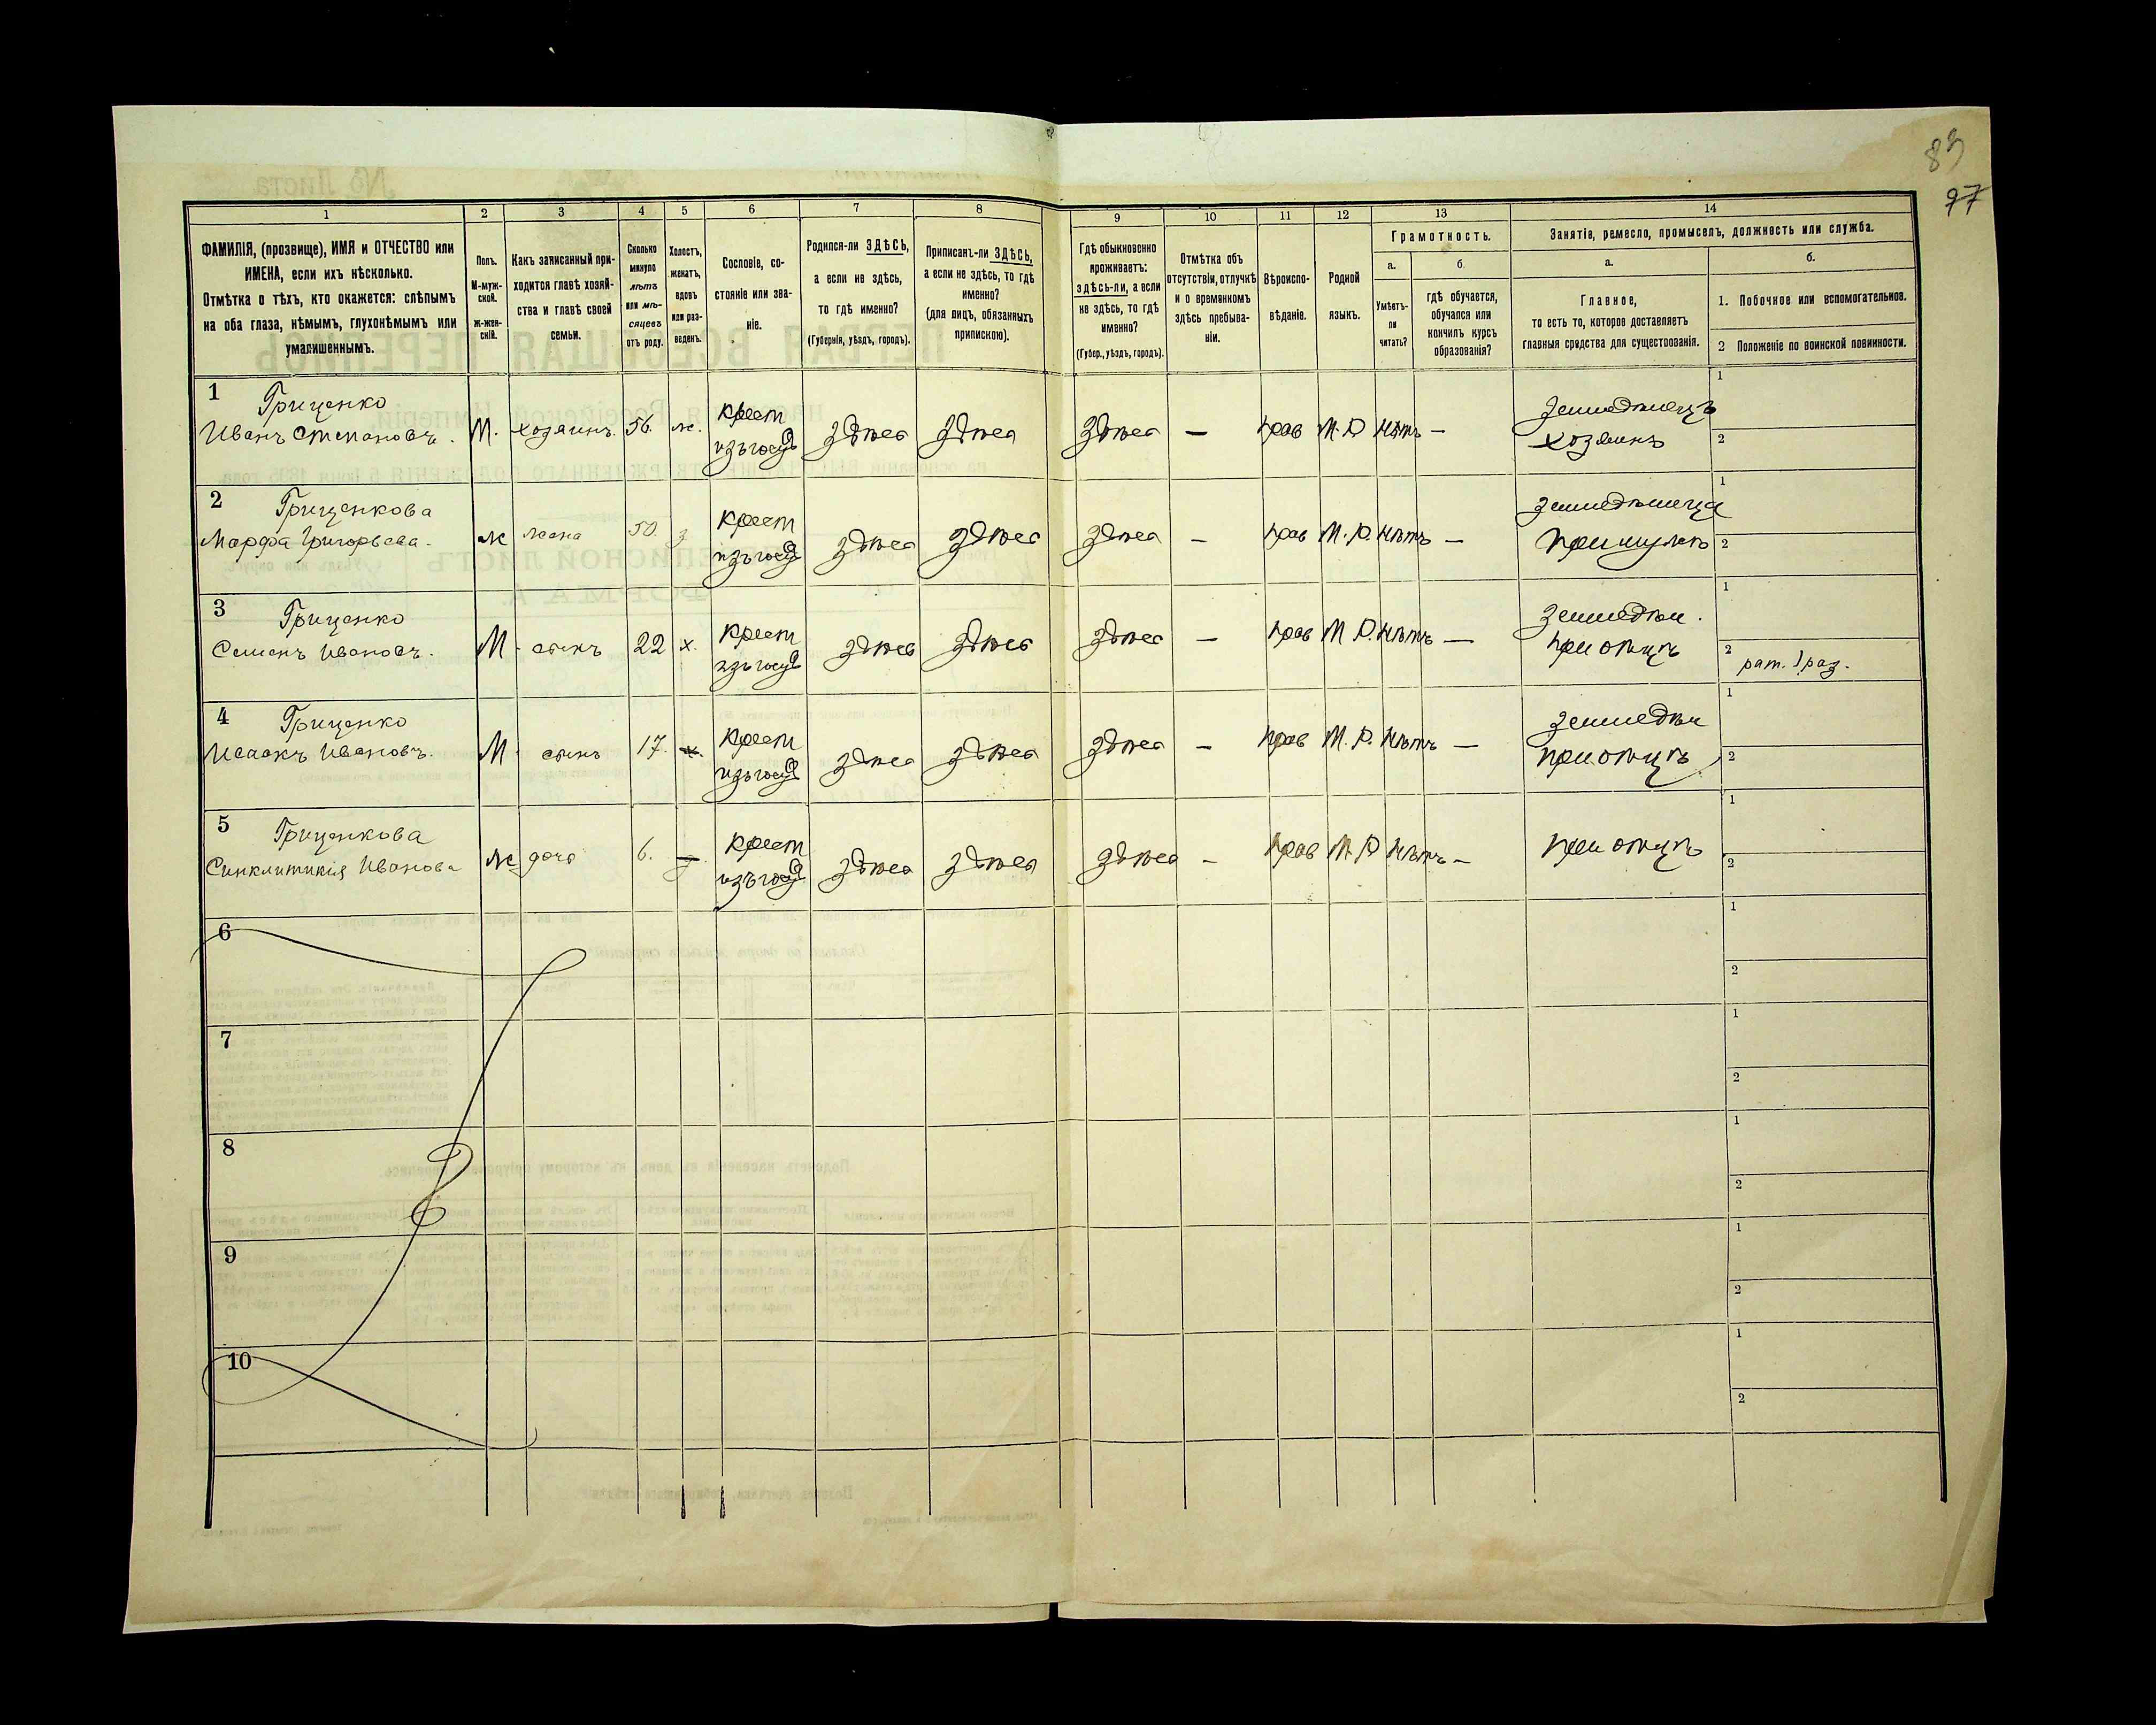 83
97
1 2 3 4 5 6 7 8 9 10 11 12 13 14
ФАМИЛІЯ, (прозвище), ИМЯ и ОТЧЕСТВО или
ИМЕНА, если ихъ нѣсколько.
Отмѣтка о тѣхъ, кто окажется: слѣпымъ
на оба глаза, нѣмымъ, глухонѣмымъ или
умалишеннымъ.
Полъ.
М-муж-
ской.
ж-жен-
скій.
Какъ записанный при-
ходится главѣ хозяй-
ства и главѣ своей
семьи.
Сколько
минуло
лѣтъ
или мѣ-
сяцевъ
отъ роду.
Холостъ,
женатъ,
вдовъ
или раз-
веденъ.
Сословіе, со-
стояніе или зва-
ніе.
Родился-ли ЗДѢСЬ,
а если не здѣсь,
то гдѣ именно?
(Губернія, уѣздъ, городъ).
Приписанъ-ли ЗДѢСЬ,
а если не здѣсь, то гдѣ
именно?
(для лицъ, обязанныхъ
припискою).
Гдѣ обыкновенно
проживаетъ:
здѣсь-ли, а если
не здѣсь, то гдѣ
именно?
(Губер., уѣздъ, городъ).
Отмѣтка объ
отсутствіи, отлучкѣ
и о временномъ
здѣсь пребыва-
ніи.
Вѣроиспо-
вѣданіе.
Родной
языкъ.
Грамотность.
а.
Умѣетъ-
ли
читать?
б.
гдѣ обучается,
обучался или
кончилъ курсъ
образованія?
Занятіе, ремесло, промыселъ, должность или служба.
а.
Главное,
то есть то, которое доставляетъ
главныя средства для существованія.
б.
1. Побочное или вспомогательное.
2 Положеніе по воинской повинности.
1 Гриценко крест земледѣлецъ 1
Иванъ Степановъ. М. хозяинъ. 56. ж. изъ госуд здѣсь здѣсь здѣсь — прав М.Р. нѣтъ — хозяинъ 2
2 Гриценкова крест 1
Марфа Григорьева. ж жена 50. з изъ госуд здѣсь здѣсь здѣсь — прав М.Р. нѣтъ — при мужѣ 2
3 Гриценко крест земледѣл. 1
Семенъ Ивановъ. М. сынъ 22 х. изъ госуд здѣсь здѣсь здѣсь — прав М.Р. нѣтъ — при отцѣ 2 рат. 1 раз.
4 Гриценко крест земледѣл 1
Исаакъ Ивановъ. М. сынъ 17. х. изъ госуд здѣсь здѣсь здѣсь — прав М.Р. нѣтъ — при отцѣ 2
5 Гриценкова крест 1
Синклитикія Иванова ж дочь 6. — изъ госуд здѣсь здѣсь здѣсь — прав М.Р. нѣтъ — при отцѣ 2
6 1
2
7 1
2
8 1
2
9 1
2
10 1
2